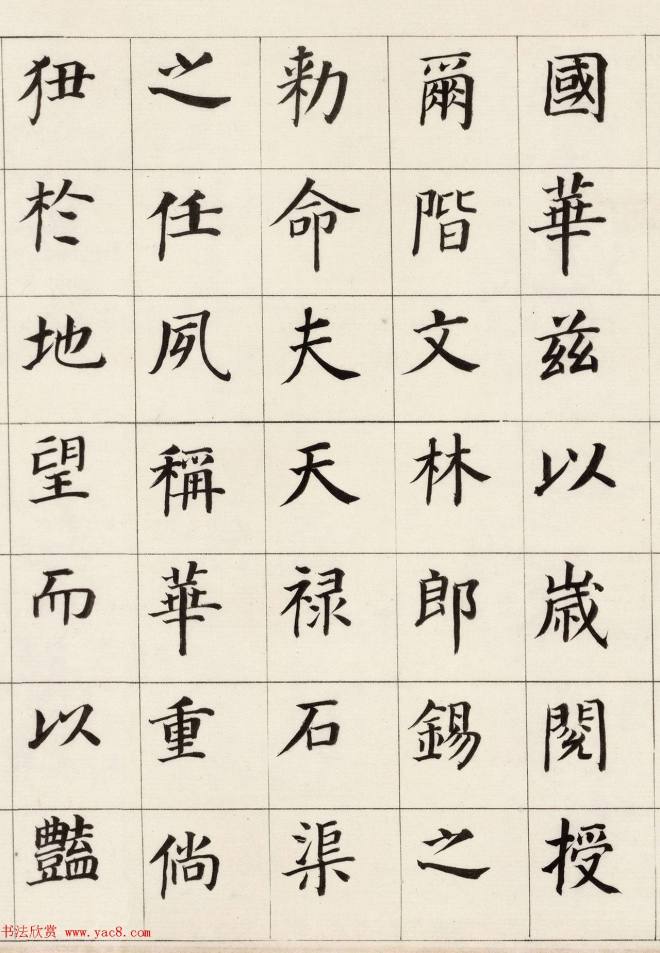 國華兹以歲閱授
爾階文林郎錫之
勑命夫天禄石渠
之任夙稱華重倘
狃扵地望而以豔
书法欣赏 www.yac8.com